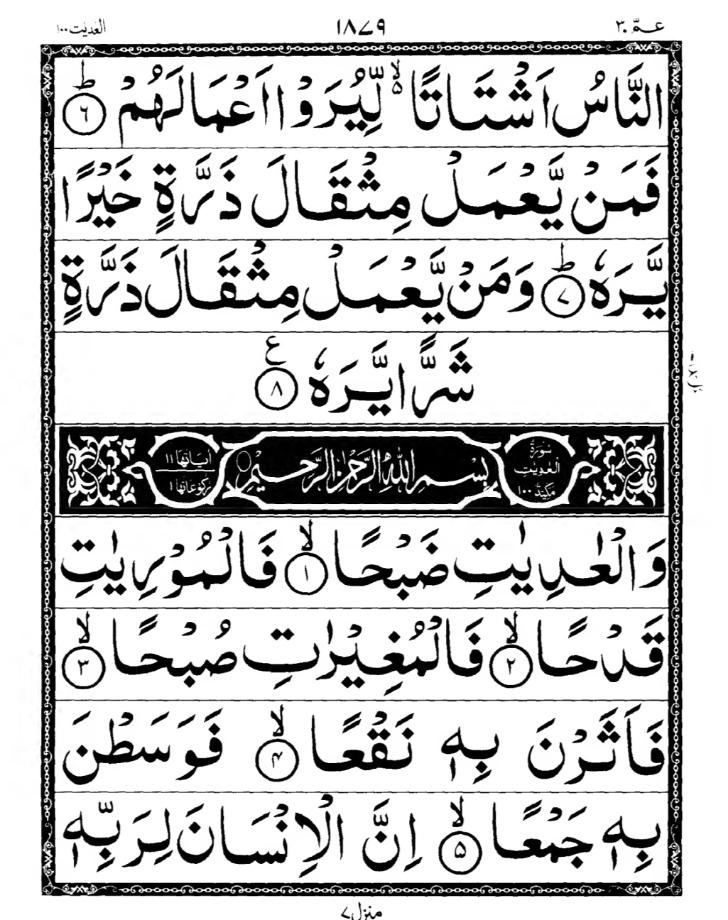 عـمّ ٣٠
١٨٧٩
العٰدیٰت ١٠٠
النَّاسُ اَشْتَاتًا ۙ۬ لِّیُرَوْا اَعْمَالَهُمْ ؕ ﴿٦﴾
فَمَنْ یَّعْمَلْ مِثْقَالَ ذَرَّةٍ خَیْرًا
یَّرَهٗ ؕ ﴿٧﴾ وَمَنْ یَّعْمَلْ مِثْقَالَ ذَرَّةٍ
شَرًّا یَّرَهٗ ﴿٨﴾ ع
سُوْرَةُ الْعٰدِیٰتِ مَکِّیَّةٌ ١٠٠
بِسْمِ اللّٰهِ الرَّحْمٰنِ الرَّحِیْمِ
اٰیاتها ١١ رکوعاتها ١
وَالْعٰدِیٰتِ ضَبْحًا ۙ ﴿١﴾ فَالْمُوْرِیٰتِ
قَدْحًا ۙ ﴿٢﴾ فَالْمُغِیْرٰتِ صُبْحًا ۙ ﴿٣﴾
فَاَثَرْنَ بِهٖ نَقْعًا ۙ ﴿۴﴾ فَوَسَطْنَ
بِهٖ جَمْعًا ۙ ﴿۵﴾ اِنَّ الْاِنْسَانَ لِرَبِّهٖ
منزل ٧